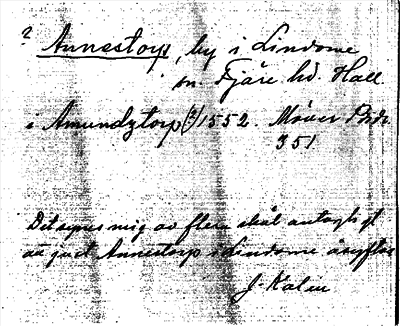 ? Annestorp, by i Lindome
sn. Fjäre hd. Hall.
i Amundztorp (?) 1552.
351
Det synes mig av flera skäl antagligt
att just Annestorp i Lindome åsyftas
J. Kalén